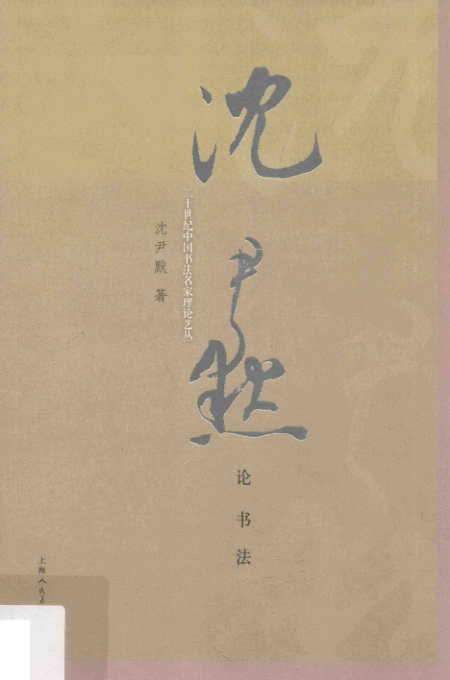 沈尹默
二十世纪中国书法名家理论艺丛
沈尹默 著
论书法
上海人民